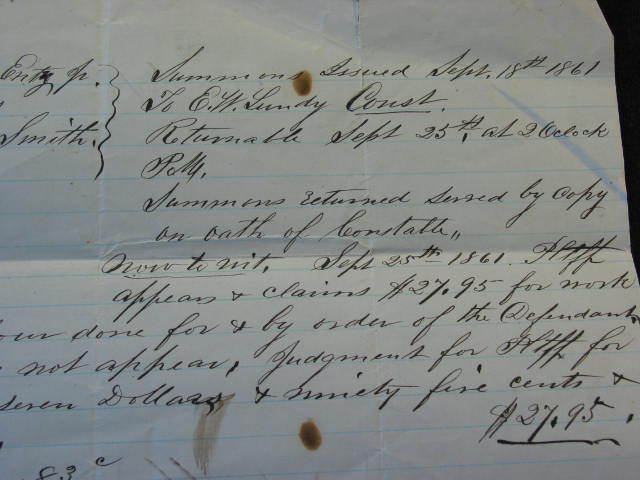 Entz jr. Summons Issued Sept. 18th 1861
To E. W. Lundy Const.
Smith. Returnable Sept 25th, at 2 Oclock
P.M.
Summons returned served by copy
on oath of Constable,,
Now to wit. Sept 25th 1861. Pltff
appears & claims $27.95 for work
done for & by order of the Defendant
not appear, Judgment for Pltff for
seven Dollars & ninety five cents &
$27.95.
83 c